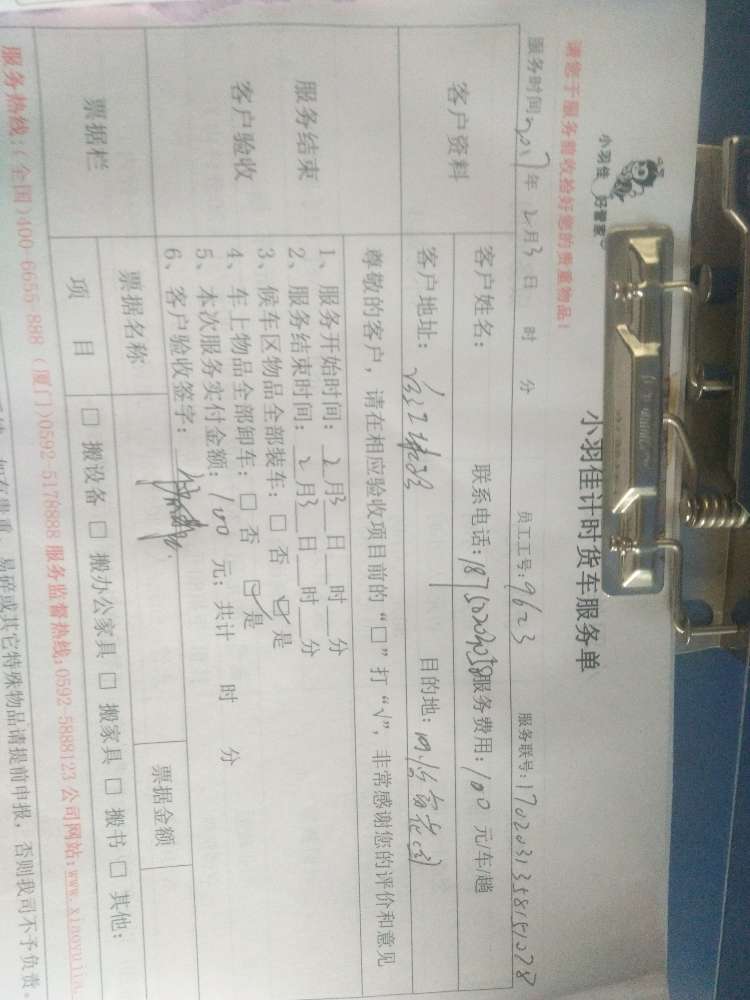 小羽佳 好管家
小羽佳计时货车服务单
请您于服务前收拾好您的贵重物品!
服务时间2017年2月3日 时 分 员工工号:9623 服务联号:1702031358151078
客户资料
客户姓名: 联系电话: 服务费用:100 元/车/趟
客户地址: 目的地:
尊敬的客户,请在相应验收项目前的“□”打“√”,非常感谢您的评价和意见
服务结束
客户验收
1、服务开始时间:2月3日 时 分
2、服务结束时间:2月3日 时 分
3、候车区物品全部装车:□ 否 ☑ 是
4、车上物品全部卸车:□ 否 ☑ 是
5、本次服务实付金额:100 元;共计 时 分
6、客户验收签字:
票据栏 票据名称 票据金额
项 目 □ 搬设备 □ 搬办公家具 □ 搬家具 □ 搬书 □ 其他:
服务热线:(全国)400-6655-888 (厦门)0592-5178888 服务监督热线:0592-5888123 公司网站:www.xiaoyujia.
易碎或其它特殊物品请提前申报,否则我司不予负责。